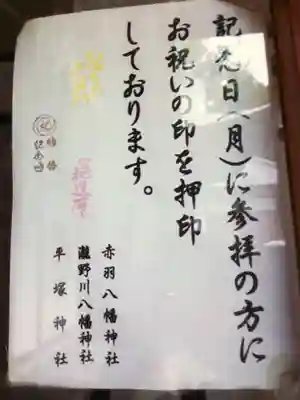 記念日(月)に参拝の方に
お祝いの印を押印
しております。
赤羽八幡神社
瀧野川八幡神社
平塚神社